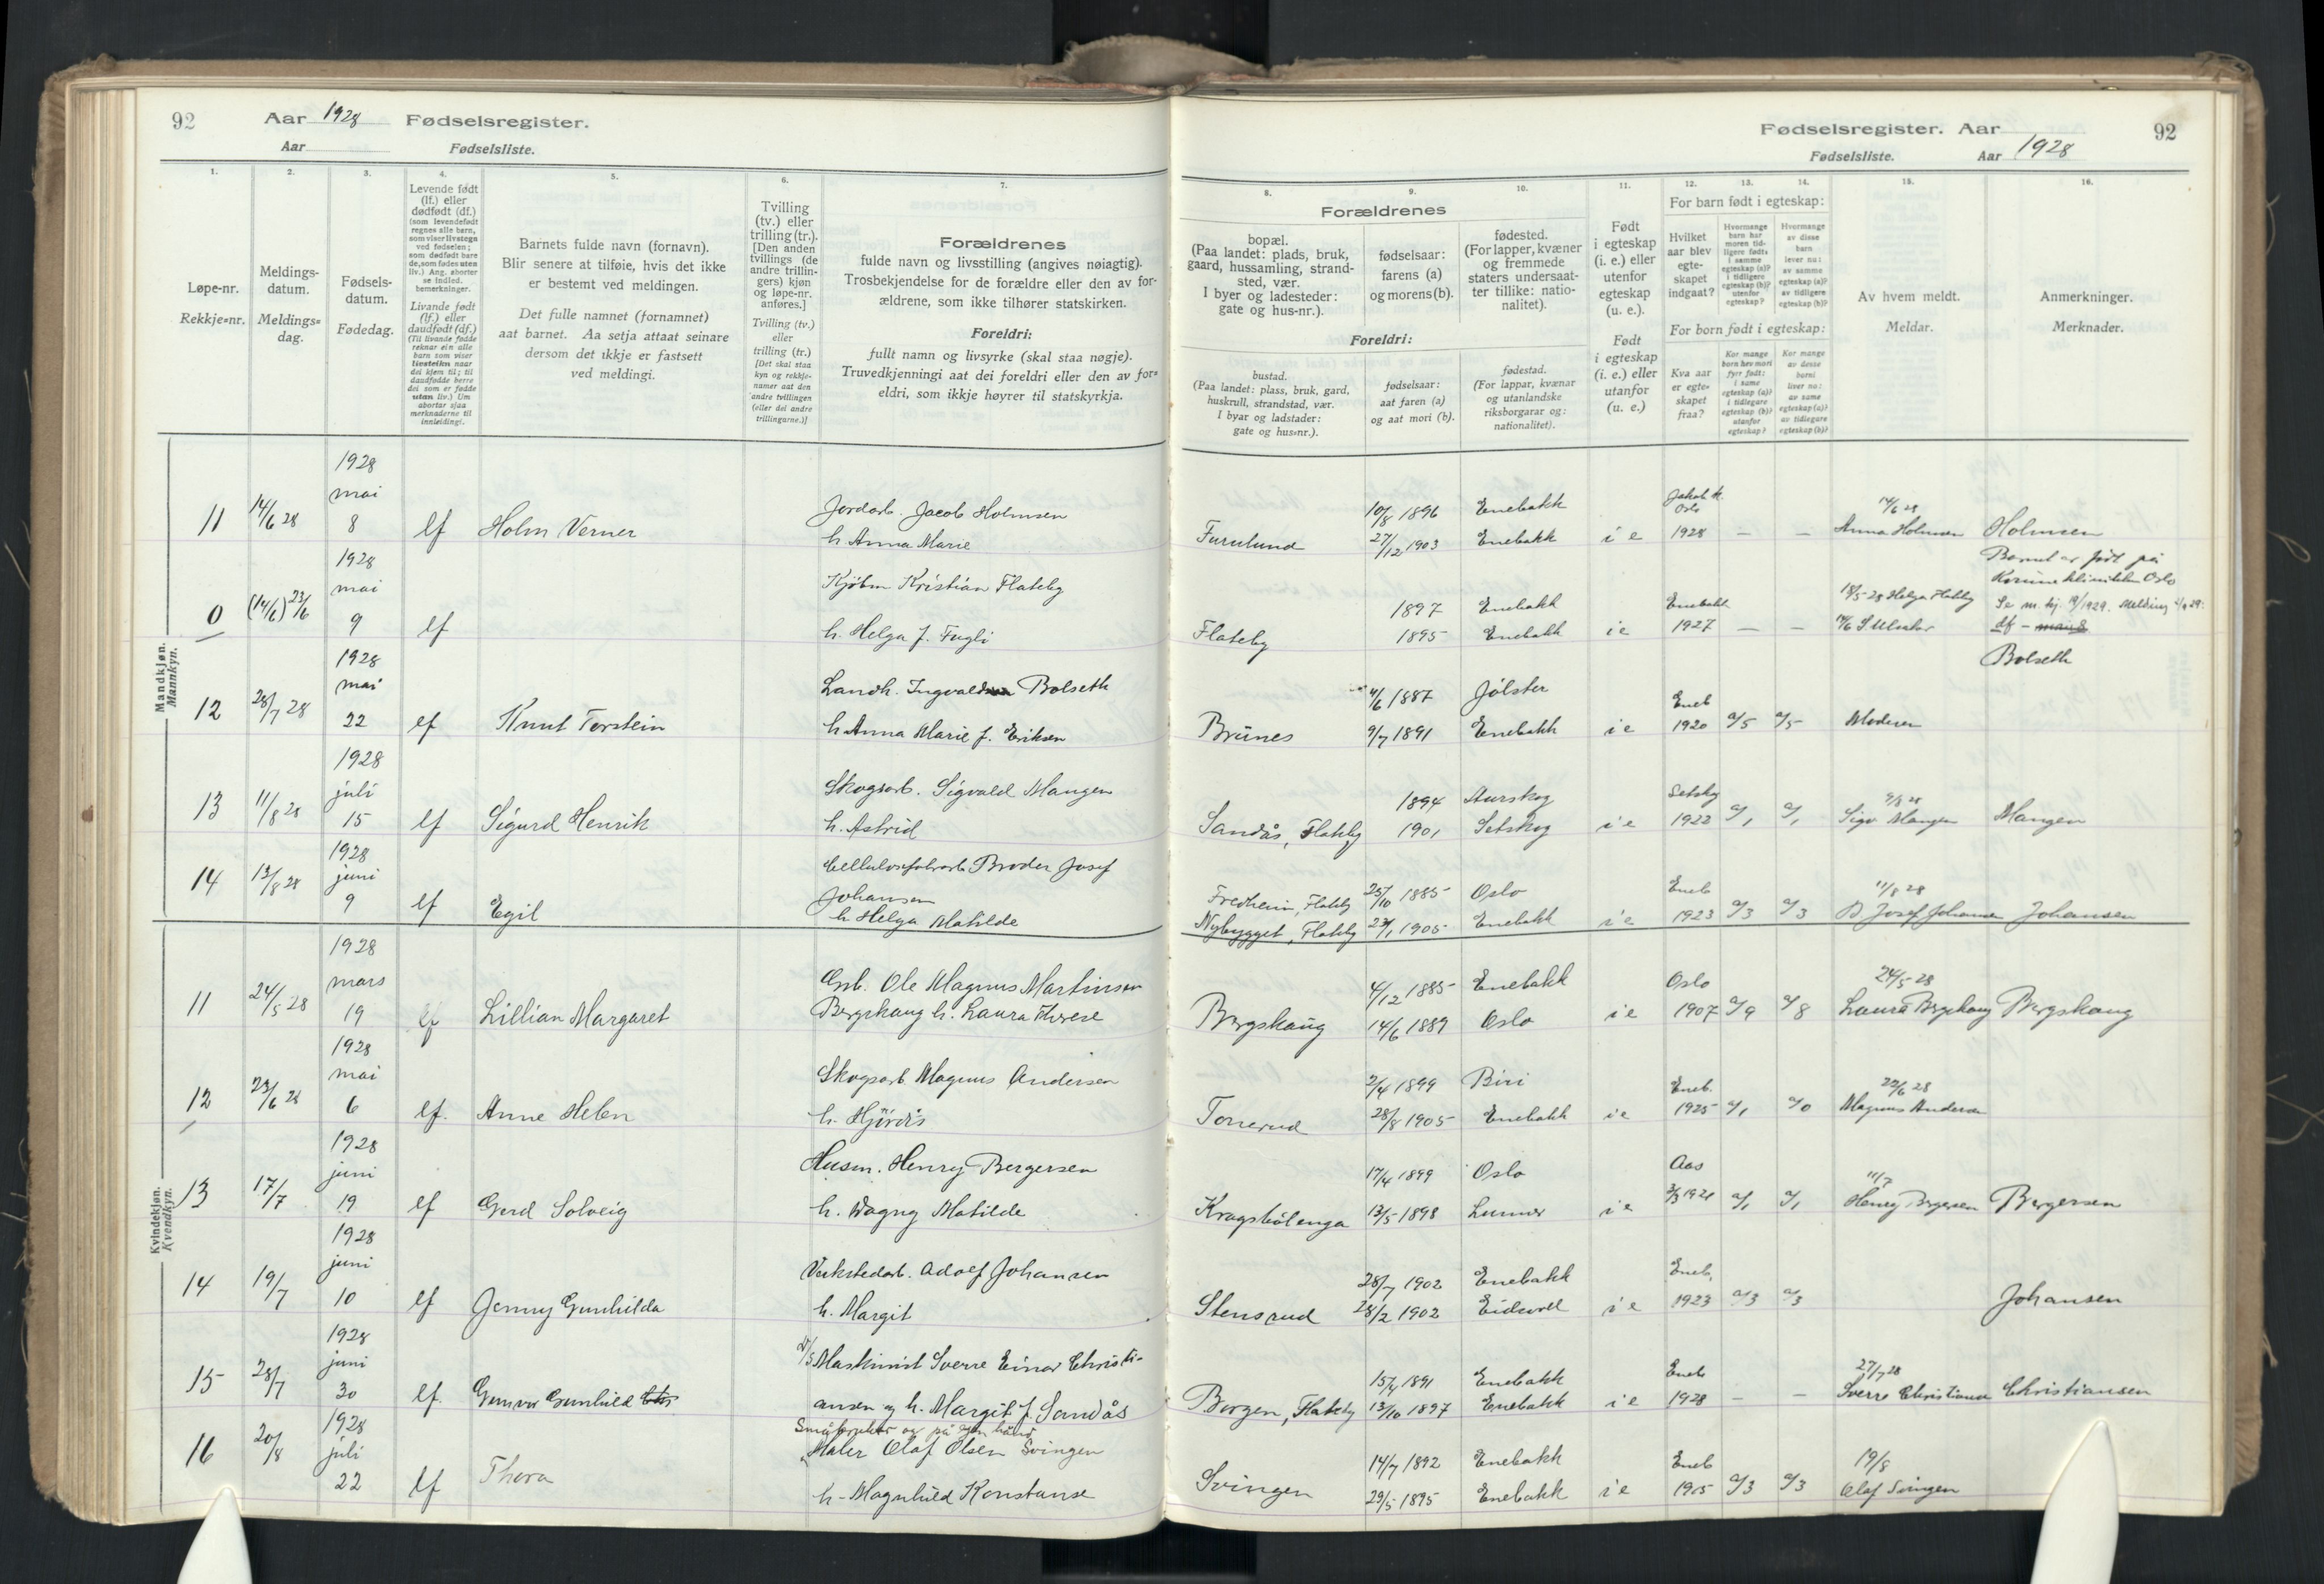 92 Aar 1928 Fødselsregister.
Aar Fødselsliste.
Fødselsregister. Aar 92
Fødselsliste. Aar 1928
1. 2. 3. 4. 5. 6. 7.
Løpe-nr.
Rekkje=nr.
Meldings-
datum.
Meldings=
dag.
Fødsels-
datum.
Fødedag.
Levende født
(lf.) eller
dødfødt (df.)
(som levendefødt
regnes alle barn,
som viser livstegn
ved fødselen;
som dødfødt bare
de, som fødes uten
liv.) Ang. aborter
se indled.
bemerkninger.
Livande født
(lf.) eller
daudfødt (df.)
(Til livande fødde
reknar ein alle
barn som viser
livsteikn naar
dei kjem til; til
daudfødde berre
dei som er fødde
utan liv.) Um
abortar sjaa
merknaderne til
innleidingi.
Barnets fulde navn (fornavn).
Blir senere at tilføie, hvis det ikke
er bestemt ved meldingen.
Det fulle namnet (fornamnet)
aat barnet. Aa setja attaat seinare
dersom det ikkje er fastsett
ved meldingi.
Tvilling
(tv.) eller
trilling (tr.).
[Den anden
tvillings (de
andre trillin-
gers) kjøn
og løpe-nr.
anføres.]
Tvilling (tv.)
eller
trilling (tr.)
[Det skal staa
kyn og rekkje-
namer aat den
andre tvillingen
(eller dei andre
trillingarne.)]
Forældrenes
fulde navn og livsstilling (angives nøiagtig).
Trosbekjendelse for de forældre eller den av for-
ældrene, som ikke tilhører statskirken.
Foreldri:
fullt namn og livsyrke (skal staa nøgje).
Truvedkjenningi aat dei foreldri eller den av for=
eldri, som ikkje høyrer til statskyrkja.
8. 9. 10. 11. 12. 13. 14. 15. 16.
Forældrenes
bopæl.
(Paa landet: plads, bruk,
gaard, hussamling, strand-
sted, vær.
I byer og ladesteder:
gate og hus-nr.).
fødselsaar:
farens (a)
og morens (b).
fødested.
(For lapper, kvæner
og fremmede
staters undersaat-
ter tillike: natio-
nalitet).
Foreldri:
bustad.
(Paa landet: plass, bruk, gard,
huskrull, strandstad, vær.
I byar og ladstader:
gate og hus=nr.).
fødselsaar:
aat faren (a)
og aat mori (b).
fødestad.
(For lappar, kvænar
og utanlandske
riksborgarar og:
nationalitet).
Født
i egteskap
(i. e.) eller
utenfor
egteskap
(u. e.).
Født
i egteskap
(i. e.) eller
utanfor
egteskap
(u. e.)
For barn født i egteskap:
Hvilket
aar blev
egte-
skapet
indgaat?
Hvormange
barn har
moren tid-
ligere født:
i samme
egteskap (a)?
i tidligere
egteskap (b)?
utenfor
egteskap?
Hvormange
av disse
barn
lever nu:
av samme
egteskap (a)?
av tidligere
egteskap (b)?
For born født i egteskap:
Kva aar
er egte=
skapet
fraa?
Kor mange
born hev mori
fyrr født:
i same
egteskap (a)?
i tidlegare
egteskap (b)?
utanfor
egteskap?
Kor mange
av desse
borni
liver no:
av same
egteskap (a)?
av tidlegare
egteskap (b)?
Av hvem meldt.
Meldar.
Anmerkninger.
Merknader.
Mandkjøn.
Mannkyn.
1928
mai
11 14/6 28 8 lf Holm Verner
Jordarb. Jacob Holmsen
h. Anna Marie
Furulund 10/8 1896 Enebakk
27/12 1903 Enebakk i e Oslo 1928 — —
14/6 28
Anna Holmsen Holmsen
1928
mai
0 (14/6) 23/6 9 lf
Kjøbm Kristian Flateby
h. Helga f. Fugli
Flateby 1897 Enebakk
1895 Enebakk i e Enebakk 1927 — —
18/5-28 Helga Flateby
Barnet er født på
Kvinneklinikken Oslo
df -
1928
mai
12 28/7 28 22 lf Knut Torstein
Landh. Ingvald Bolseth
h. Anna Marie f. Eriksen
Brünes 4/6 1887 Jølster
9/7 1891 Enebakk i e Eneb 1920 a/5 a/5 Moderen
Bolseth
1928
juli
13 11/8 28 15 lf Sigurd Henrik
Skogsarb. Sigvald Mangen
h. Astrid
Sandås, Flateby 1894 Aurskog
1901 Setskog i e Setskog 1922 a/1 a/1
9/8 28
Sigv Mangen Mangen
1928
juni
14 13/8 28 9 lf Egil
Cellulosefabrarb. Broder Josef
Johansen
h. Helga Matilde
Fredheim, Flateby 25/10 1885 Oslo
Nybygget, Flateby 1905 Enebakk i e Eneb 1923 a/3 a/3
11/8 28
B Josef Johansen Johansen
Kvindekjøn.
Kvendkyn.
1928
mars
11 24/5 28 19 lf Lillian Margaret
Grb. Ole Magnus Martinsen
Bergskaug h. Laura Therese
Bergskaug 4/12 1885 Enebakk
14/6 1889 Oslo i e Oslo 1907 a/9 a/8
24/5-28
Laura Bergskaug Bergskaug
1928
mai
12 23/6 28 6 lf. Anne Helen
Skogsarb. Magnus Andersen
h. Hjørdis
Tonerud 2/4 1899 Biri
28/8 1905 Enebakk i e Eneb. 1925 a/1 a/0
22/6 28
Magnus Andersen
1928
juni
13 17/7 19 lf Gerd Solveig
Husm. Henry Bergersen
h. Dagny Matilde
Kragsbölenga 17/4 1899 Oslo
13/5 1898 Lunner i e Aas a/1 a/1
11/7
Henry Bergersen Bergersen
1928
juni
14 19/7 10 lf Jenny Gunhilda
Verkstedarb. Adolf Johansen
h. Margit
Stensrud 28/7 1902 Enebakk
28/2 1902 Eidsvoll i e Eneb. 1923 a/3 a/3
Johansen
1928
juni
15 28/7 30 lf. Gunvor Gunhild
Maskinist Sverre Einar Christi-
ansen og h. Margit f. Sandås
Borgen, Flateby 15/4 1891 Enebakk
13/10 1897 Enebakk i e Eneb 1928 — —
27/7 28
Sverre Christiansen Christiansen
1928
juli
16 20/8 22 lf Thora
Småbruker og på egen hånd
Maler Olaf Olsen Svingen
h - Magnhild Konstanse
Svingen 14/7 1892 Enebakk
29/5 1895 Enebakk i e Eneb 1915 a/3 a/3
19/8
Olaf Svingen